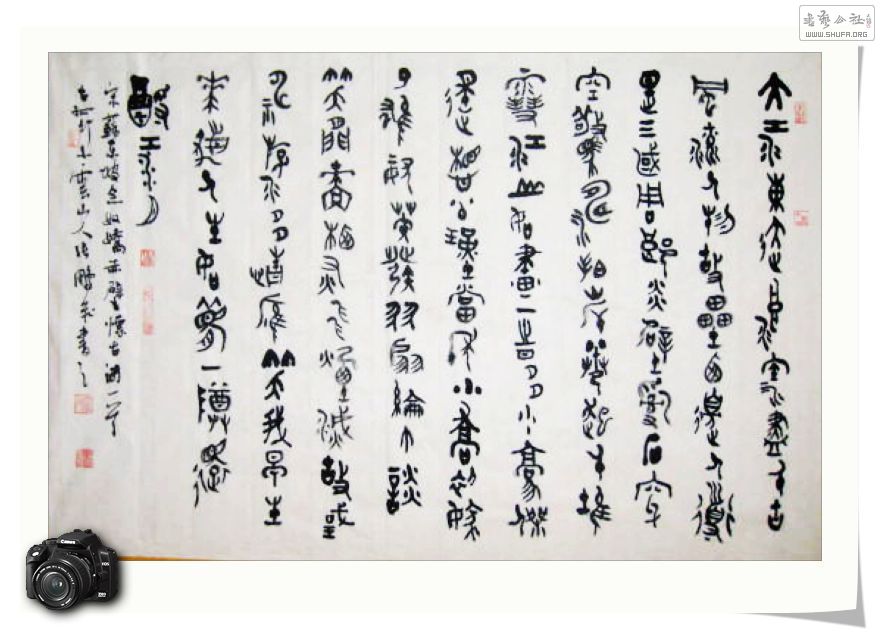 大江東去浪淘盡千古
風流人物故壘西邊人道
是三國周郎赤壁亂石穿
空驚濤拍岸捲起千堆
雪江山如畫一時多少豪傑
遙想公瑾當年小喬初嫁
了雄姿英發羽扇綸巾談
笑間檣櫓灰飛煙滅故國
神游多情應笑我早生
華髮人生如夢一樽還
酹江月
宋蘇東坡念奴嬌赤壁懷古詞一首
雲山人書
書藝公社
WWW.SHUFA.ORG
Canon
EOS